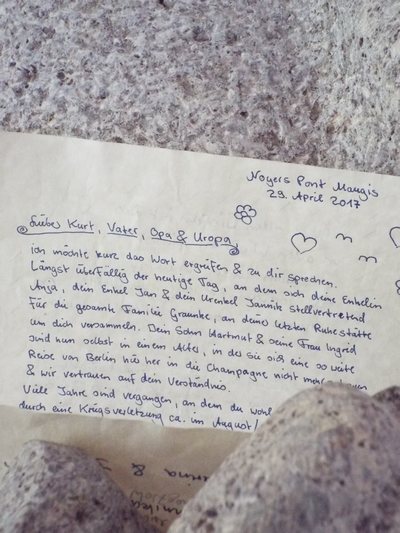 Noyers Pont Maugis
29. April 2017
Lieber Kurt, Vater, Opa & Uropa,
ich möchte kurz das Wort ergreifen & zu dir sprechen.
Längst überfällig der heutige Tag, an dem sich deine Enkelin
Anja, dein Enkel Jan & dein Urenkel Jannik stellvertretend
für die gesamte Familie Graunke, an deine letzten Ruhestätte
um dich versammeln. Dein Sohn Hartmut & seine Frau Ingrid
sind nun selbst in einem Alter, in der sie sich eine so weite
Reise von Berlin bis her in die Champagne nicht mehr
& wir vertrauen auf dein Verständnis.
Viele Jahre sind vergangen, an dem du wohl
durch eine Kriegsverletzung ca. im August/